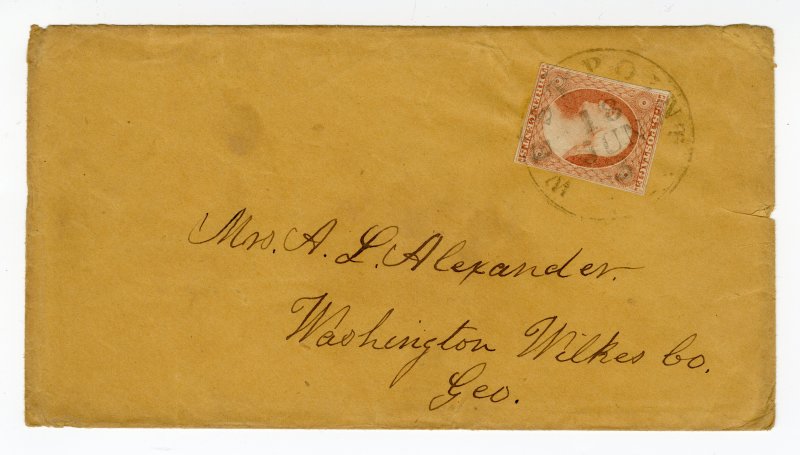 WEST POINT
18
JUN
Mrs. A. L. Alexander.
Washington Wilkes Co.
Geo.